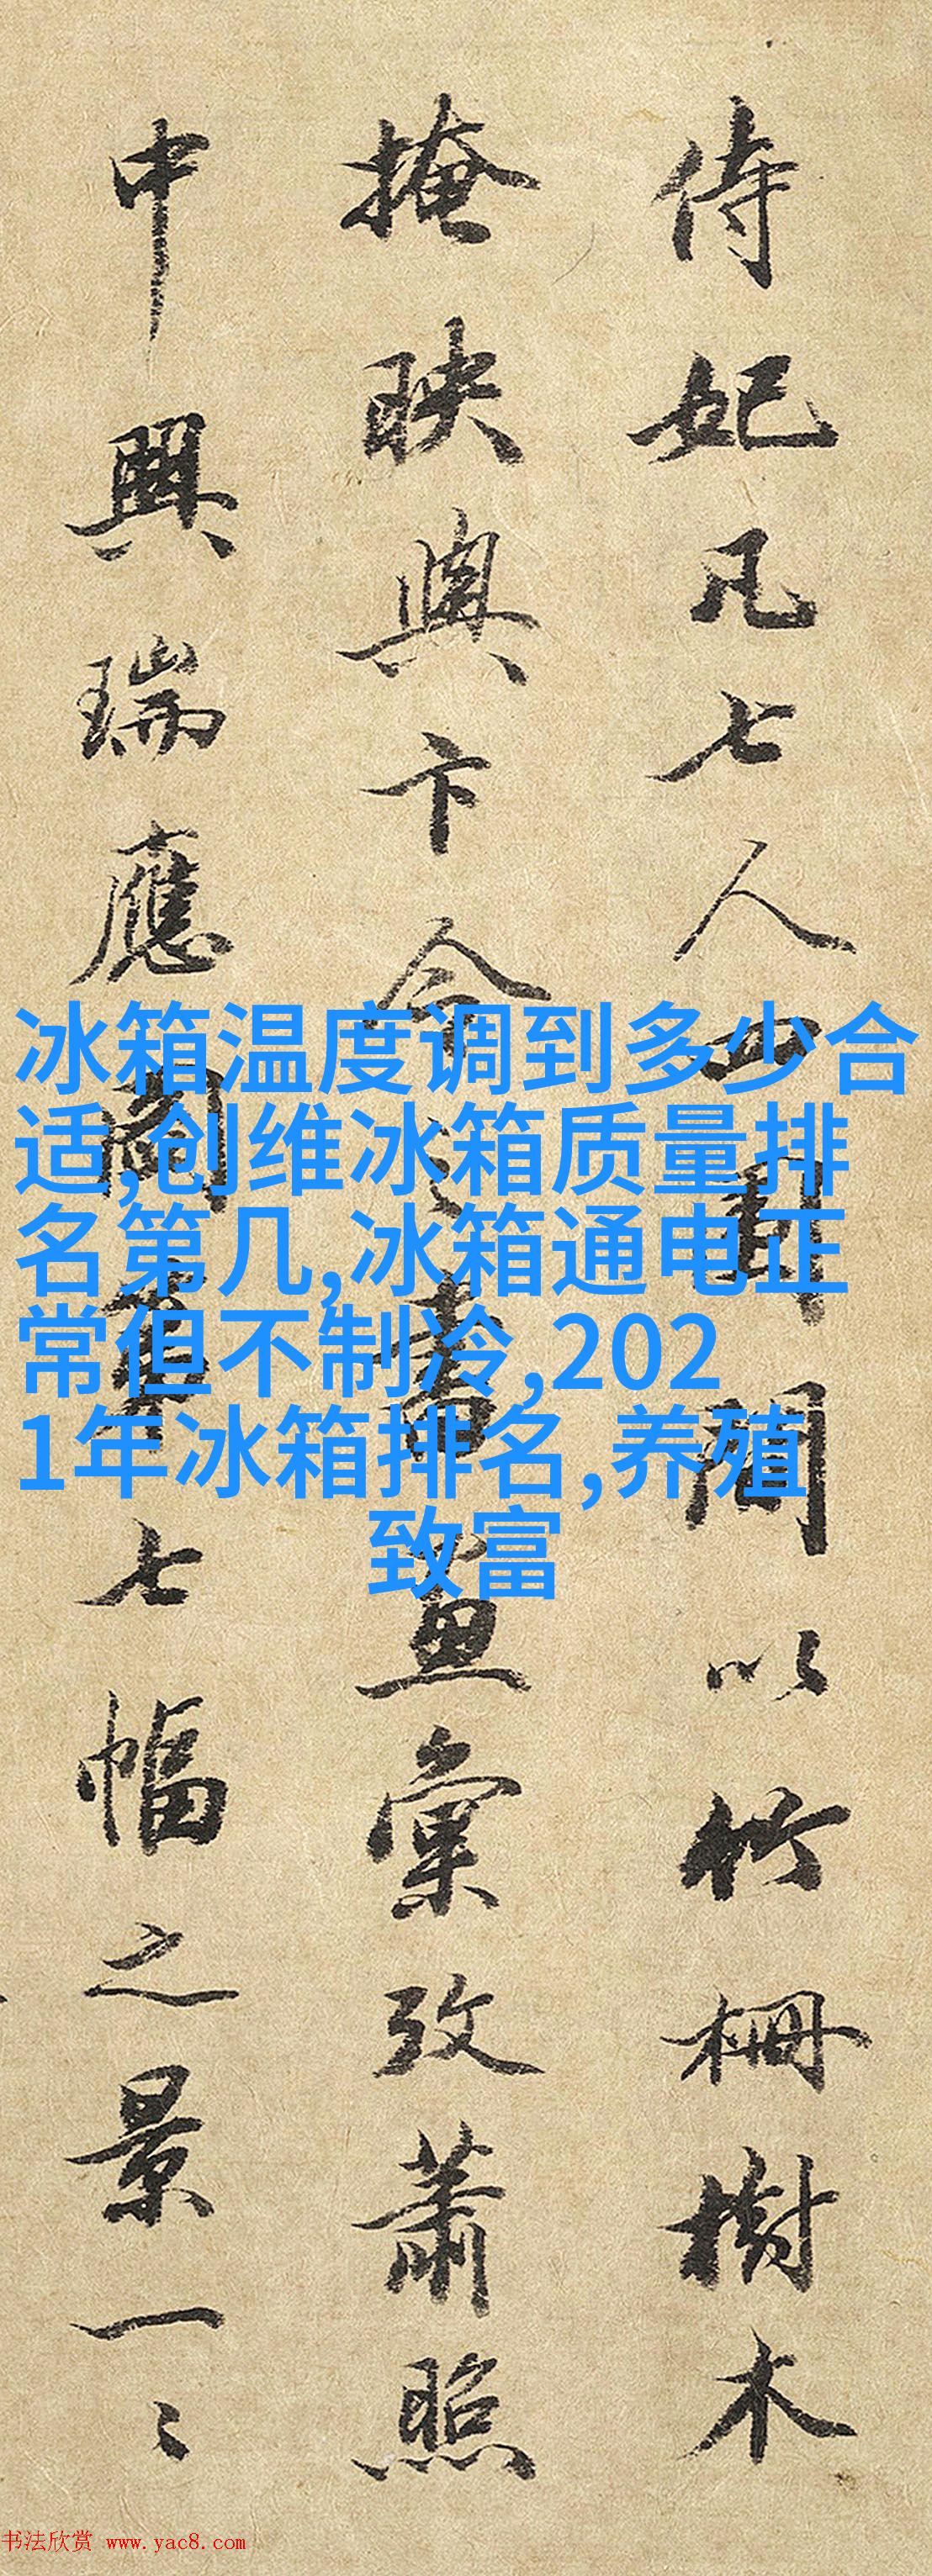 侍妃凡七人四周間以竹柵樹木
掩映與卞令之書畫彙攷蕭照
中興瑞應圖第七幅之景一〻
冰箱温度调到多少合
适,创维冰箱质量排
名第几,冰箱通电正
常但不制冷,202
1年冰箱排名,养殖
致富
书法欣赏 www.yac8.com